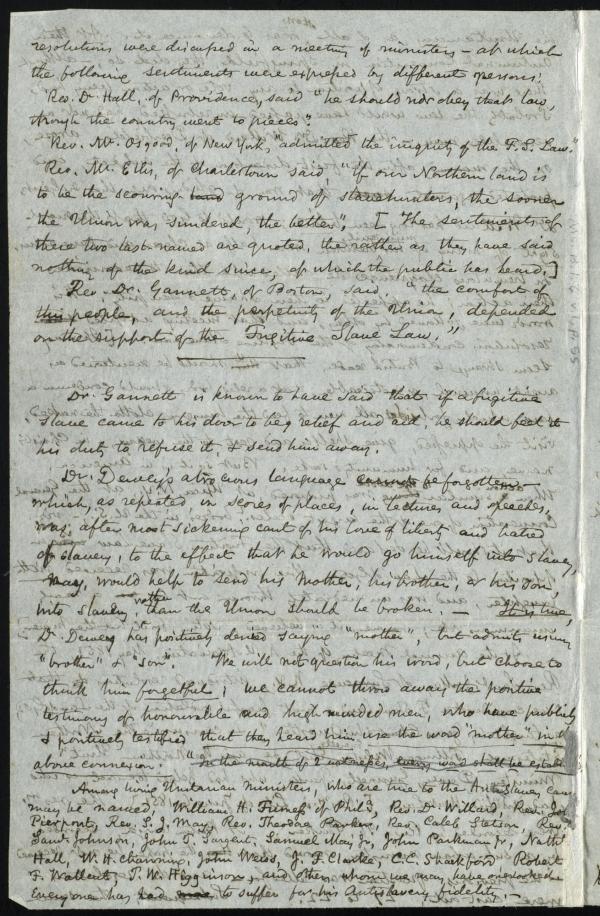 resolutions were discussed in a meeting of ministers – at which
the following sentiments were expressed by different persons:
Rev. Dr Hall, of Providence, said "he should not obey that law,
though the country went to pieces".
Rev. Mr. Osgood, of New York, "admitted the iniquity of the F. S. Law."
Rev. Mr. Ellis, of Charlestown said, "If our Northern land is
to be the scouring land ground of slavehunters, the sooner
the Union was sundered, the better". [The sentiments of
these two last named are quoted, the rather as they have said
nothing of the kind since, of which the public has heard.]
Rev. Dr. Gannett, of Boston, said "the comfort of
this people, and the perpetuity of the Union, depended
on the support of the Fugitive Slave Law."
Dr. Gannett is known to have said that if a fugitive
slave came to his door to beg relief and aid, he should feel it
his duty to refuse it, & send him away.
Dr. Dewey's atrocious language cannot be forgotten
which, as repeated in scores of places, in lectures and speeches,
was, after most sickening cant of his love of liberty and hatred
of slavery, to the effect that he would go himself into Slavery,
nay, would help to send his Mother, his brother, or his son,
into slavery rather than the Union should be broken. – It is true,
Dr. Dewey has positively denied saying "mother", but admits using
"brother" & "son". We will not question his word, but choose to
think him forgetful; we cannot throw away the positive
testimony of honourable and high minded men, who have publicly
& positively testified that they heard him use the word "mother" in
above connexion. "In the mouth of 2 witnesses, every word shall be
Among living Unitarian ministers, who are true to the Antislavery
may be named, William H. Furness of Phila, Rev. Dr Willard, Rev.
Pierpont, Rev. S. J. May, Rev. Theodore Parker, Rev. Caleb Stetson, Rev
Saml. Johnson, John T. Sargent, Samuel May Jr, John Parkman Jr, Nathl
Hall, W. H. Channing, John Weiss, J. F. Clarke, C. C. Shackford Robert
F. Wallcut, T. W. Higginson, and others whom we may have overlooked.
Everyone has had to suffer for his Antislavery fidelity.